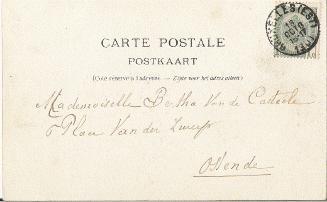 CARTE POSTALE
POSTKAART
(Côté réservé à l'adresse. — Zijde voor het adres alleen)
Mademoiselle Bertha Van de Casteele
6 Place Van der Zweep
Ostende
BRUXELLES (EST)